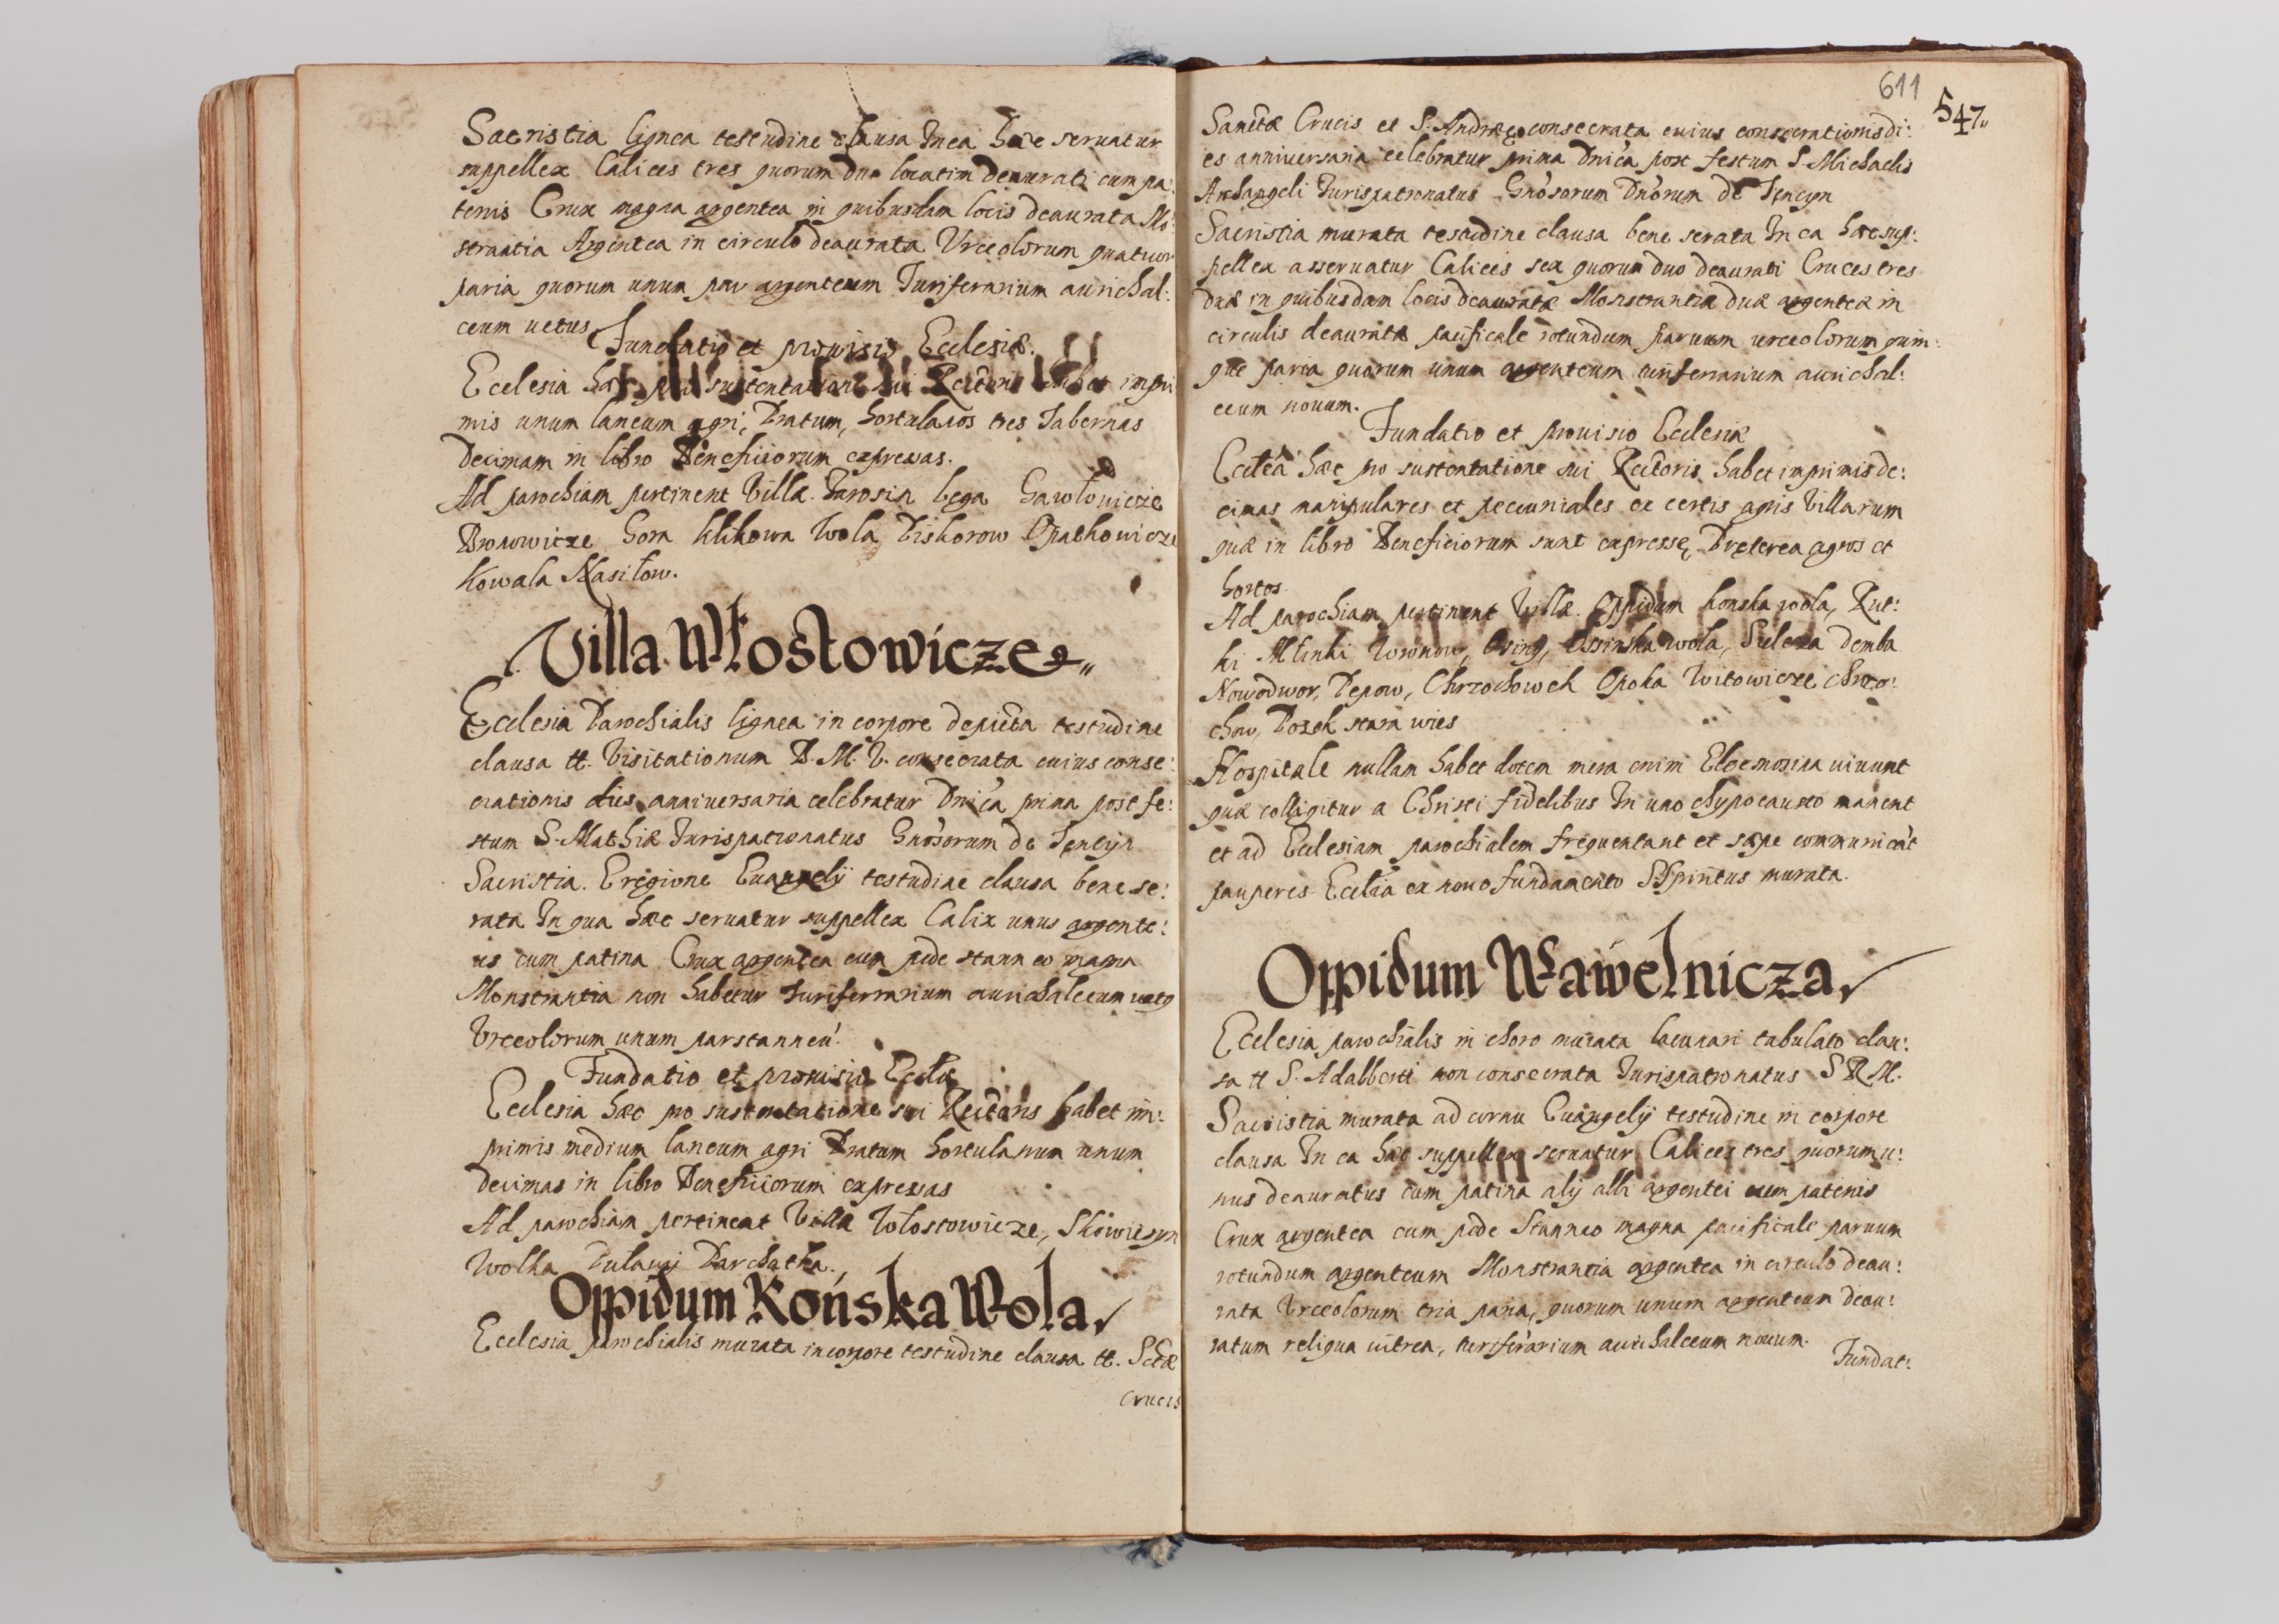 Sacristia lignea testudine clausa In ea hæc seruatur
suppellex Calices tres quorum duo locatim deaurati cum pa:
tenis Crux magna argentea in quibusdam locis deaurata Mo:
strantia Argentea in circulo deaurata Vrceolorum quatuor
paria quorum unum par argenteum Turiferarium aurichal:
ceum uetus.
Fundatio et prouisio Ecclesiæ.
Ecclesia hæc pro sustentatione sui Rectoris habet impri
mis unum laneum agri, Pratum, hortulanos tres Tabernas
Decimam in libro Beneficiorum expressas.
Ad parochiam pertinent Villæ. Parosia lega Gawłowicze
Bronowicze Gora Klikowa Wola Piskorow Opathowicze
Kowala Nasiłow.
Villa Włostowicze
Ecclesia Parochialis lignea in corpore depicta testudine
clausa tt. Visitationum B. M. V. consecrata cuius conse:
crationis dies anniuersaria celebratur Dnica prima post fe:
stum S. Mathiæ Iurispatronatus Gnosorum de Tęncyn
Sacristia. E regione Euangelij testudine clausa bene se:
rata In qua hæc seruatur suppellex Calix unus argente:
us cum patina Crux argentea cum pede stanneo magna
Monstrantia non habetur Turiferrarium aurichalceum uetus
Vrceolorum unum par stanneu.
Fundatio et prouisio Ecclæ
Ecclesia hæc pro sustentatione sui Rectoris habet im:
primis medium laneum agri Pratum hortulanum unum
decimas in libro Beneficiorum expressas
Ad parochiam pertineat Villæ Włostowicze, Skowiesyn
Wolka Pulawy Parchatka.
Oppidum Końska Wola
Ecclesia parochialis murata in corpore testudine clausa tt. Sctæ
Crucis
611
547
Sanctæ Crucis et S. Andreæ consecrata cuius consecrationis di:
es anniuersaria celebratur prima Dnica post festum S Michaelis
Archangeli Iurispatronatus Gnosorum Dnorum de Tęncyn
Sacristia murata testudine clausa bene serata In ea hæc sup:
pellex asseruatur Calices sex quorum duo deaurati Cruces tres
duæ in quibusdam locis deauratæ Monstrantiæ duæ argenteæ in
circulis deauratæ pacificale rotundum paruum urceolorum quin:
que paria quorum unum argenteum turiferrarium aurichal:
ceum nouum.
Fundatio et prouisio Ecclesiæ
Cctea hæc pro sustentatione sui Rectoris habet imprimis de:
cimas manipulares et pecuniales ex certis agris Villarum
quæ in libro Beneficiorum sunt expressę. Pręterea agros et
hortos.
Ad parochiam pertinent Villæ. Oppidum Konska wola, Rut:
ki Młinki Woronow, Osiny, Ossinska wola, Suleza demba
Nowodwor, Pepow, Chrzochowek Opoka Witowicze chrzo:
chow, Pozek stara wies
Hospitale nullam habet dotem mera enim Eloemosina uiuunt
quæ colligitur a Christi fidelibus In uno chypocausto manent
et ad Ecclesiam parochialem frequentant et sæpe communicat
pauperes Ecclia ex nouo fundamento S Spiritus murata.
Oppidum Wąwelnicza
Ecclesia parochialis in choro murata lacunari tabulato clau:
sa tt S. Adalberti non consecrata Iurispatronatus S R M.
Sacristia murata ad cornu Euangelij testudine in corpore
clausa In ea hæc suppellex seruatur Calices tres quorum u:
nus deauratus cum patina alij albi argentei cum patenis
Crux argentea cum pede Stanneo magna pacificale paruum
rotundum argenteum Monstrantia argentea in circulo deau:
rata Vrceolorum tria paria, quorum unum argenteum deau:
ratum reliqua uitrea, turiferarium aurichalceum nouum.
Fundat: